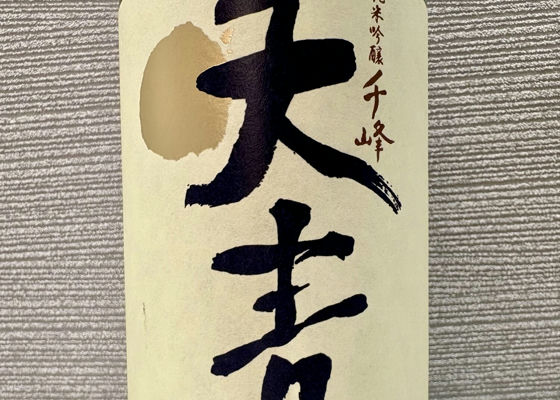 純米吟醸
千峰
天青